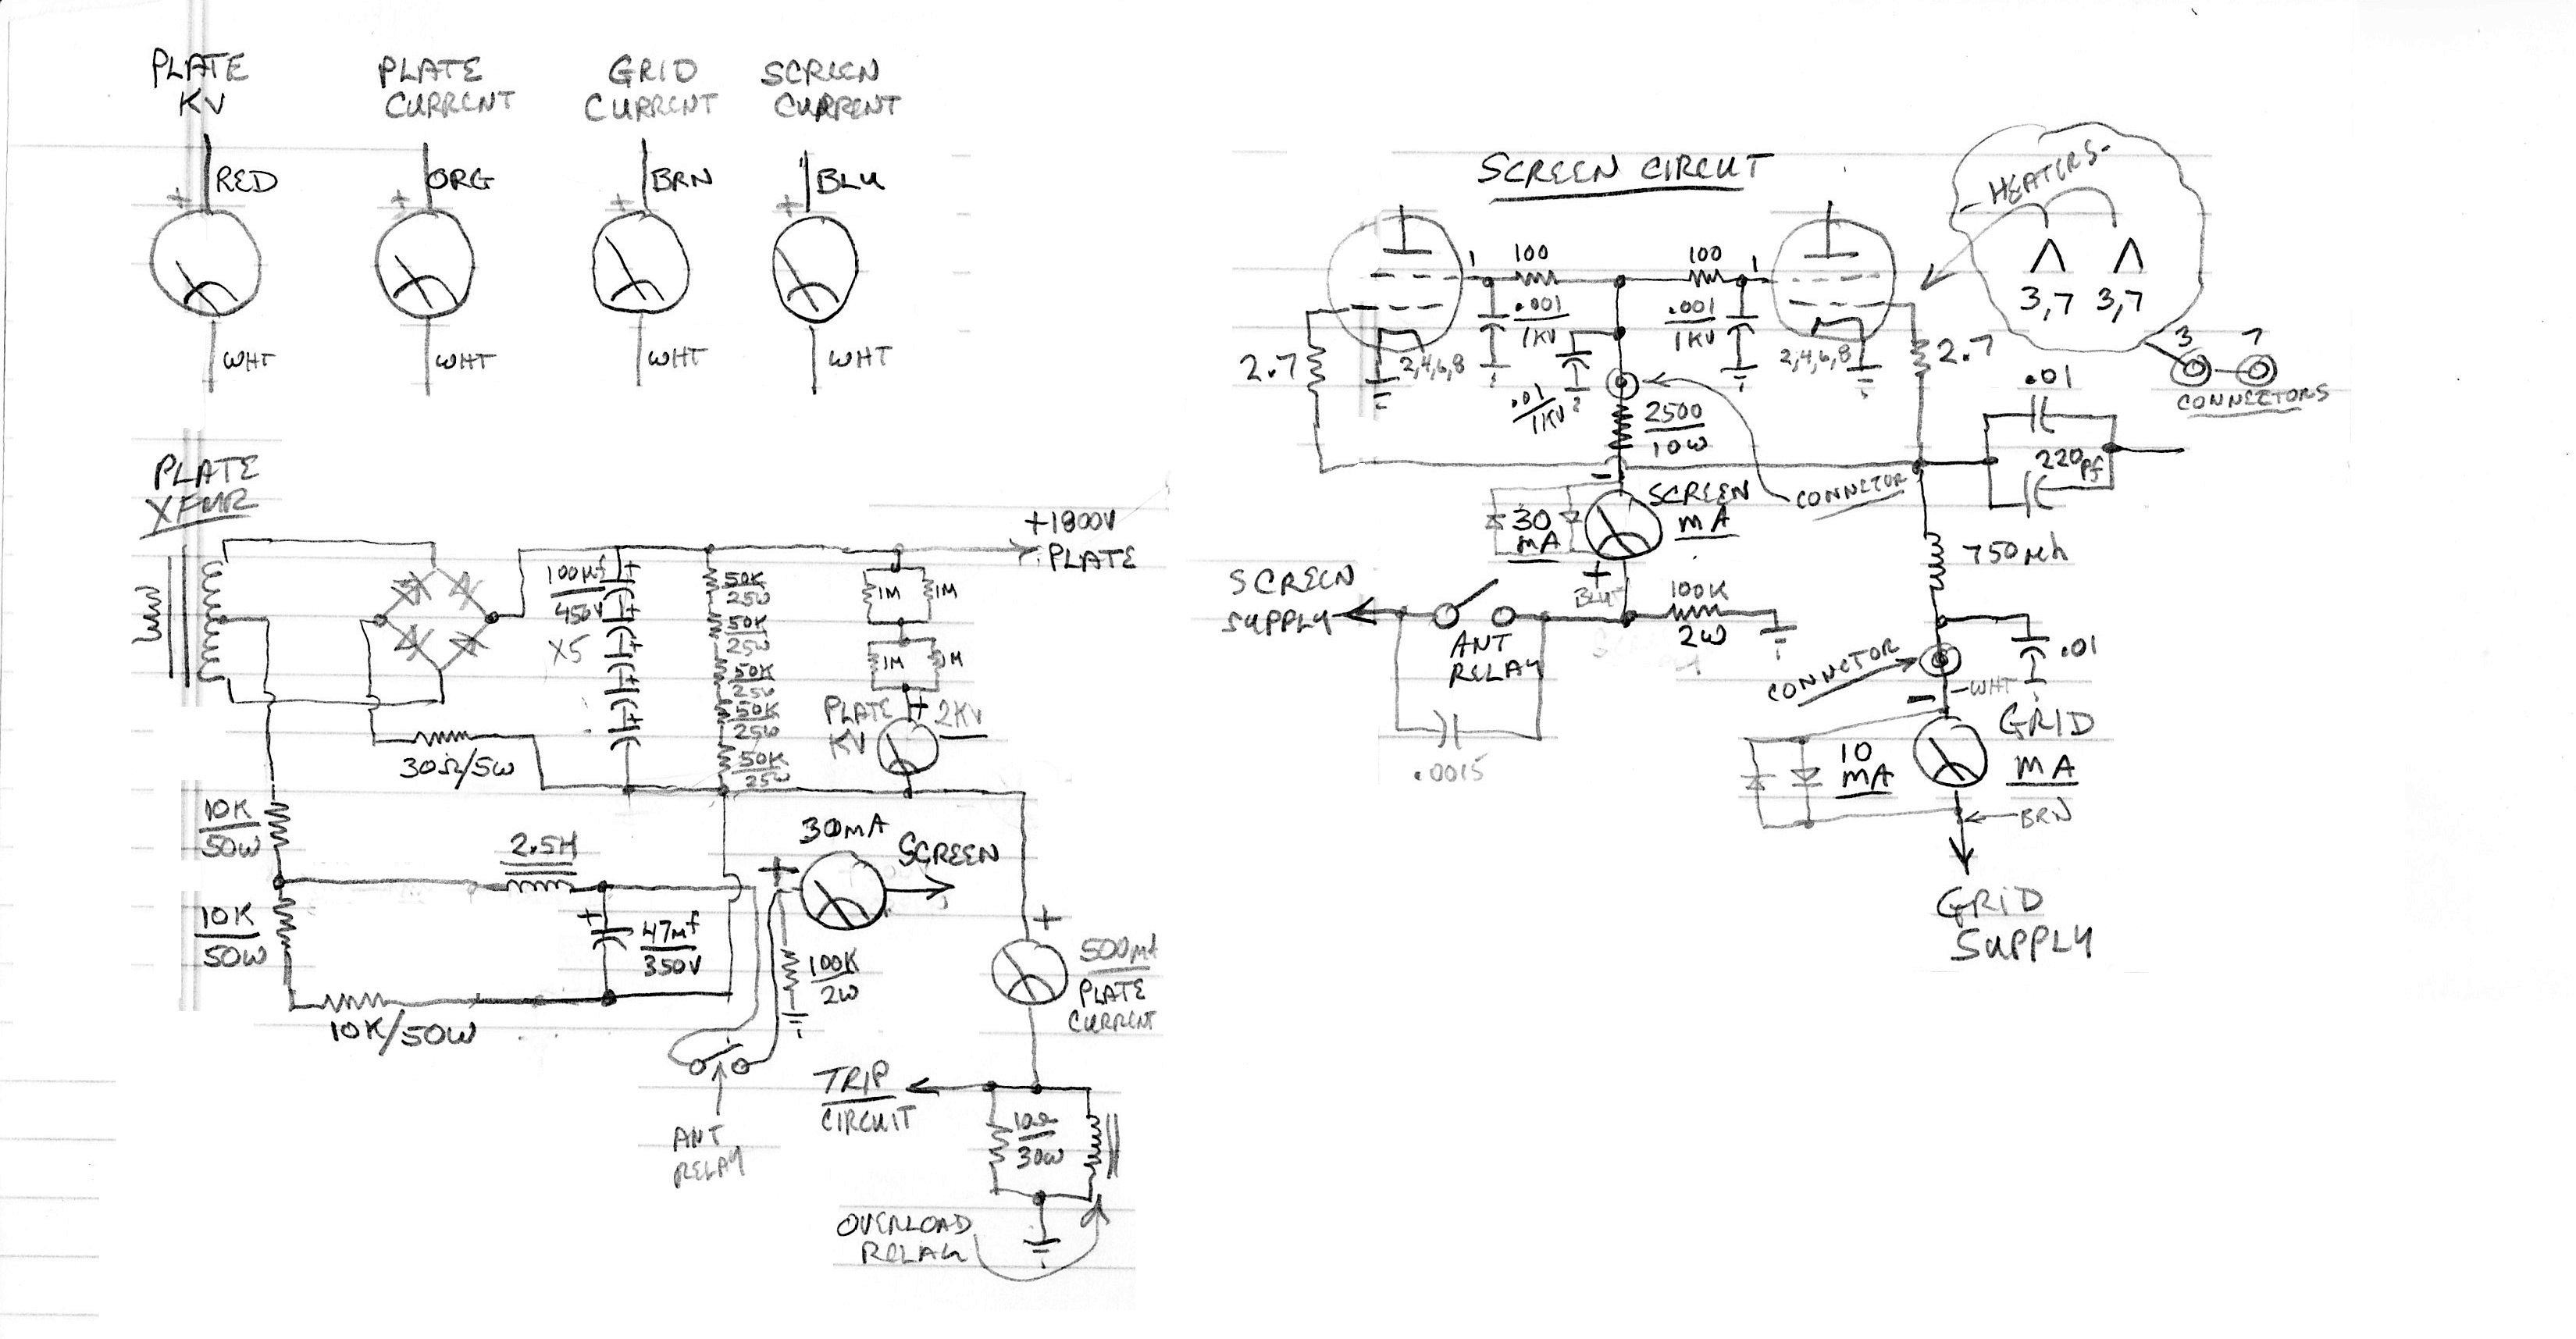 PLATE
KV
PLATE
CURRENT
GRID
CURRENT
SCREEN
CURRENT
+ RED
+ ORG
+ BRN
+ BLU
WHT
WHT
WHT
WHT
PLATE
XFMR
100µf
450V
X5
+
+
+
+
+
50K
25W
50K
25W
50K
25W
50K
25W
50K
25W
1M
1M
1M
1M
+1800V
PLATE
PLATE
KV
+ 2KV
30Ω/5W
10K
50W
10K
50W
10K/50W
2.5H
+ 47mf
350V
30mA
+
SCREEN
100K
2W
ANT
RELAY
+
500MA
PLATE
CURRENT
TRIP
CIRCUIT
10Ω
30W
OVERLOAD
RELAY
SCREEN CIRCUT
HEATERS
3,7 3,7
3 7
CONNECTORS
1
100
100
1
.001
1KV
.001
1KV
.01
1KV
2,4,6,8
2,4,6,8
2.7
2.7
2500
10W
.01
220pf
CONNECTOR
SCREEN
mA
-
30
mA
+
BLU
SCREEN
SUPPLY
ANT
RELAY
100K
2W
.0015
750µh
.01
CONNECTOR
- WHT
GRID
mA
10
mA
BRN
GRID
SUPPLY